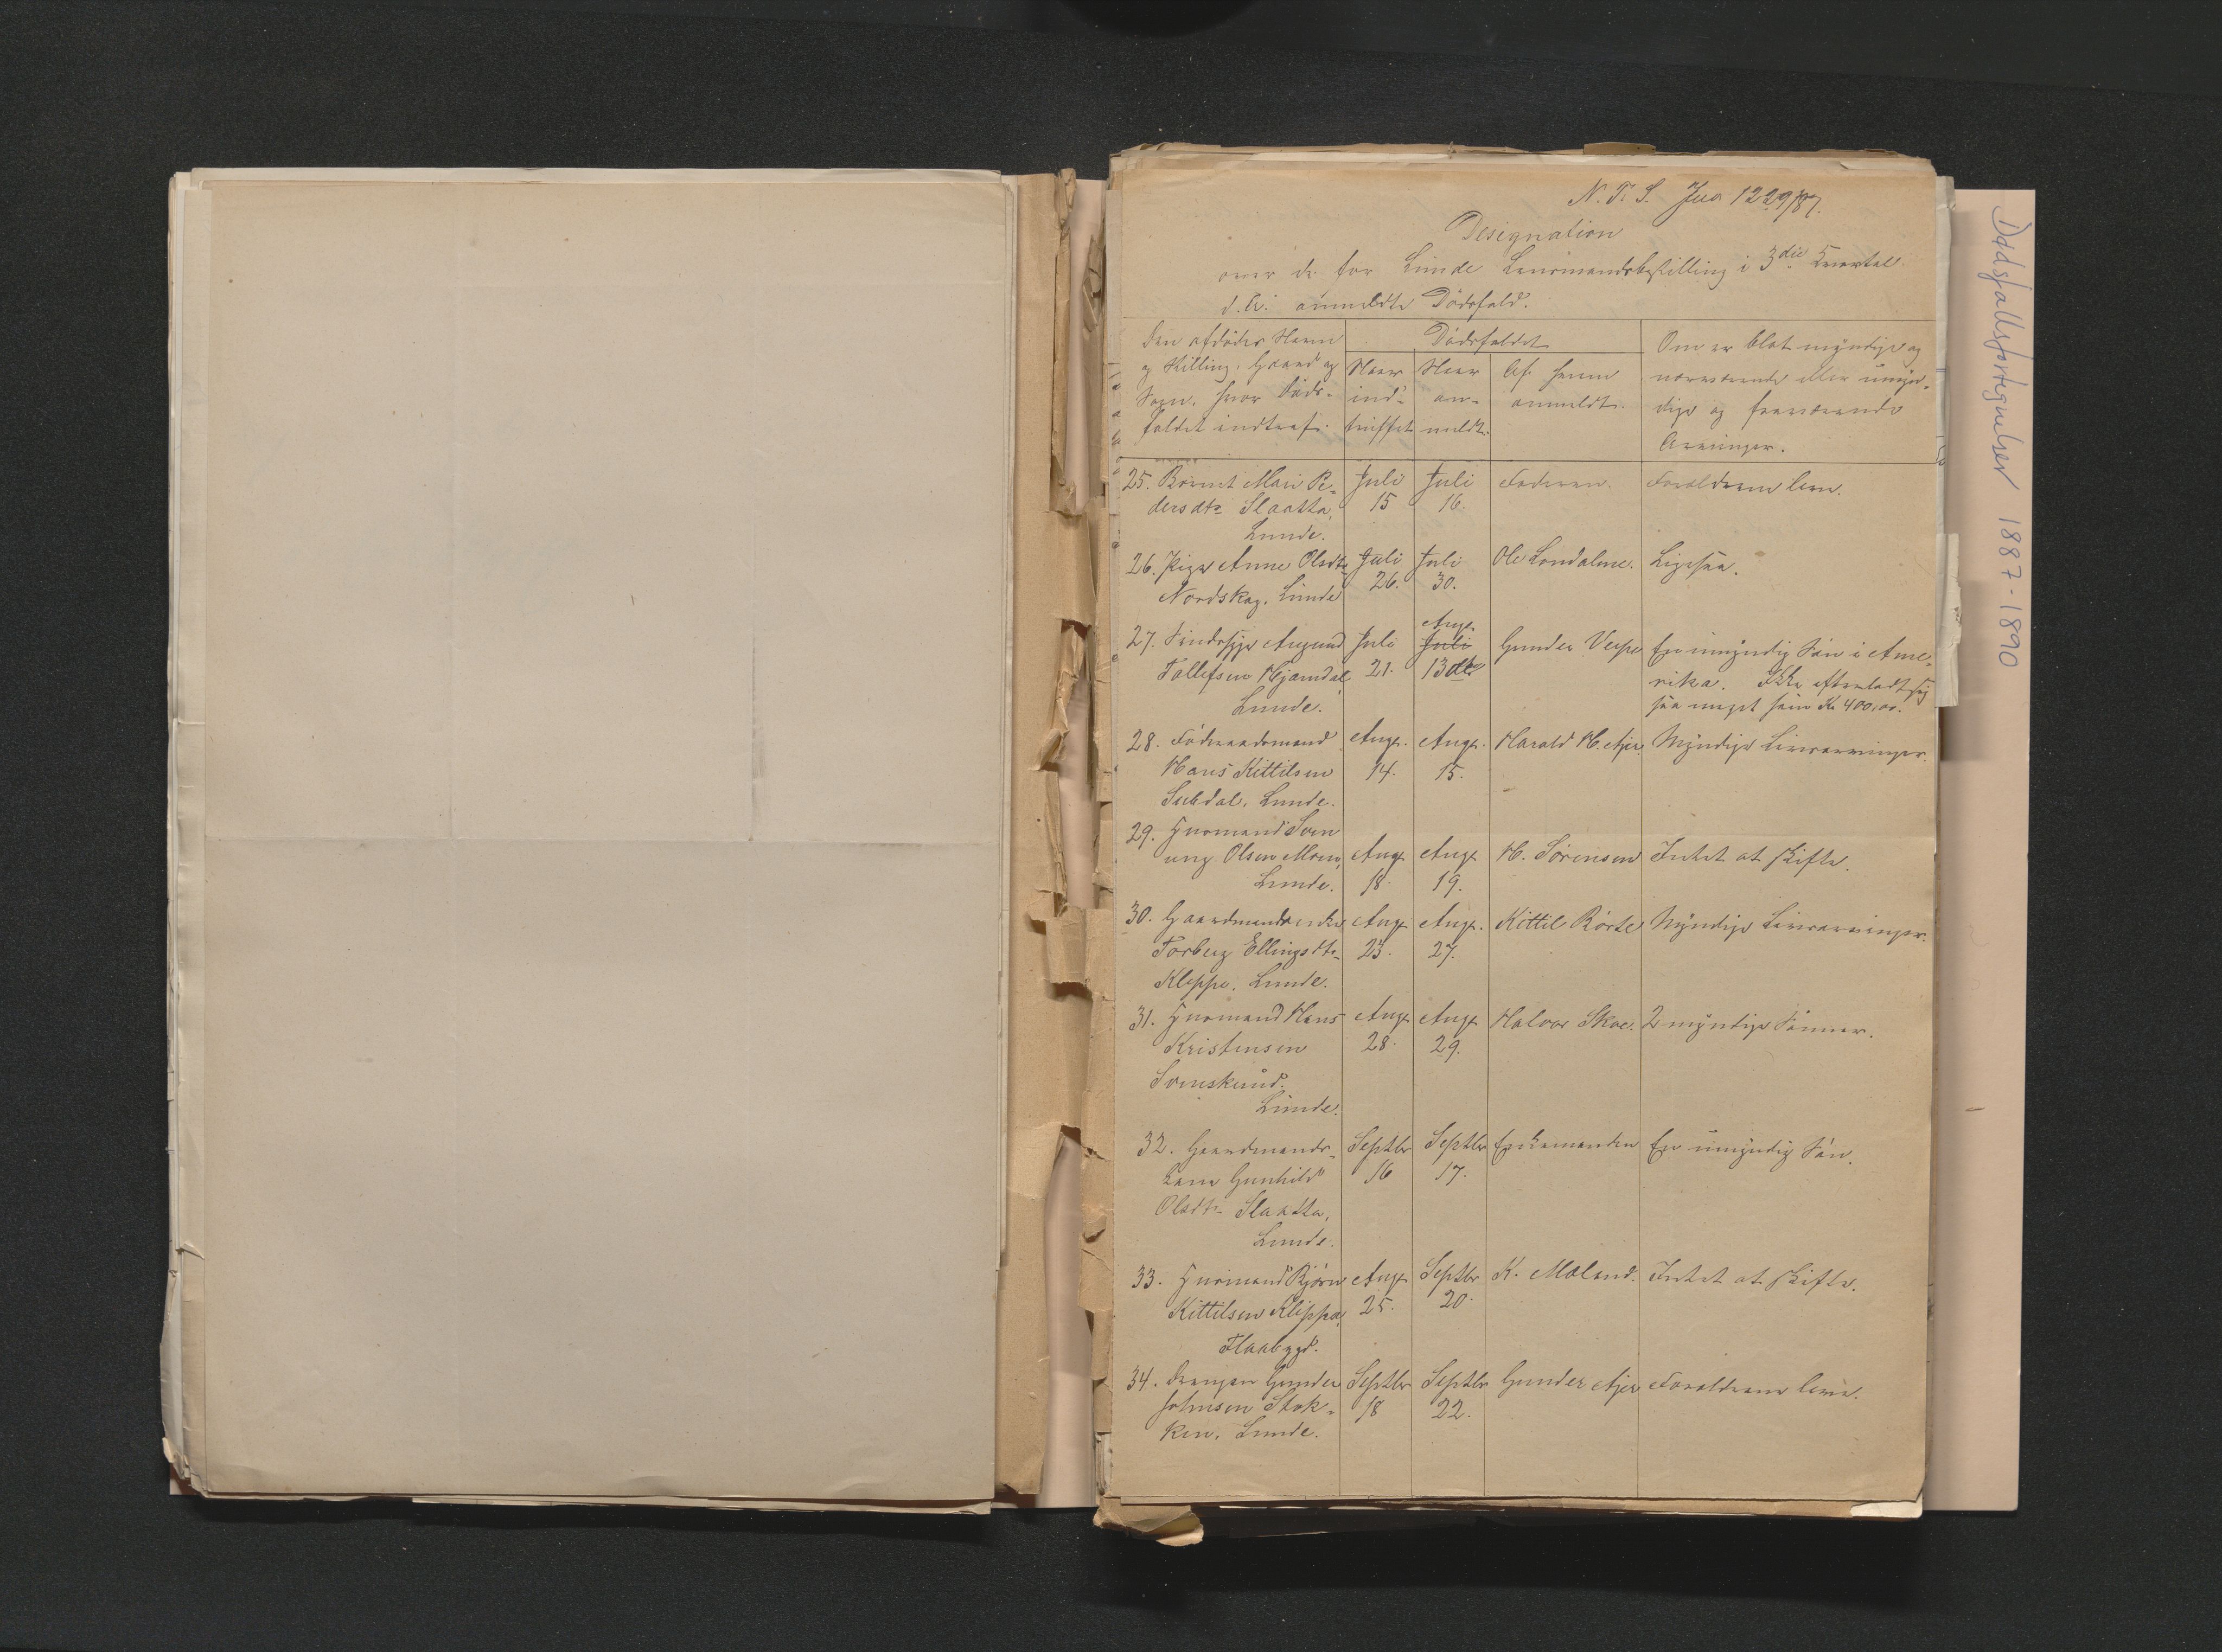 N. T. S. Jua 1229/87.
Designation
over de for Lunde Lensmandsbestilling i 3die Kvartal
d. A. anmeldte Dödsfald.
Den afdödes Navn
og Stilling, Gaard og
Sogn, hvor Döds-
faldet indtraf.
Dödsfaldet
Naar
ind-
truffet
Naar
an-
meldt.
Af hvem
anmeldt.
Om er blot myndige og
nærværende eller umyn-
dige og fraværende
Arvinger.
25. Barnet Mari Pe-
dersdtr Slaatta,
Lunde.
Juli
15
Juli
16.
Faderen.
Forældrene leve.
26. Pige Anne Olsdtr
Nordskog, Lunde
Juli
26.
Juli
30.
Ole Londalme.
Ligesaa.
27. Sindssyge Aagund
Tollefsen Hjamdal,
Lunde.
Juli
21.
Aug.
Juli
13de
Gunder Verpe
En umyndig Sön i Ame-
rika. Ikke efterladt sig
saa meget som Kr 400,00.
28. Föderaadsmand
Hans Kittilsen
Lunde.
Aug.
14.
Aug.
15.
Harald H. Ajer.
Myndige Livsarvinger.
29. Husmand Sven
ung Olsen Moen,
Lunde.
Aug
18.
Aug
19.
H. Sörensen
Intet at skifte.
30. Gaardmandsenke
Torberg Ellingsdtr
Kleppe, Lunde.
Aug
23.
Aug.
27.
Kittil Rörte
Myndige Livsarvinger.
31. Husmand Hans
Kristensen
Svenskerud.
Lunde.
Aug
28.
Aug
29.
Halvor Skoe.
2 myndige Sönner.
32. Gaardmands-
kone Gunhild
Olsdtr Slaatta,
Lunde.
Septbr
16
Septbr
17.
Enkemanden
En umyndig Sön.
33. Husmand Björn
Kittilsen Kleppa,
Flaabygd.
Aug
25.
Septbr
20.
K. Moland.
Intet at skifte.
34. Drengen Gunder
Johnsen Stok-
ken, Lunde.
Septbr
18
Septbr
22.
Gunder Ajer
Forældrene leve.
Dødsfallsfortegnelser 1887-1890